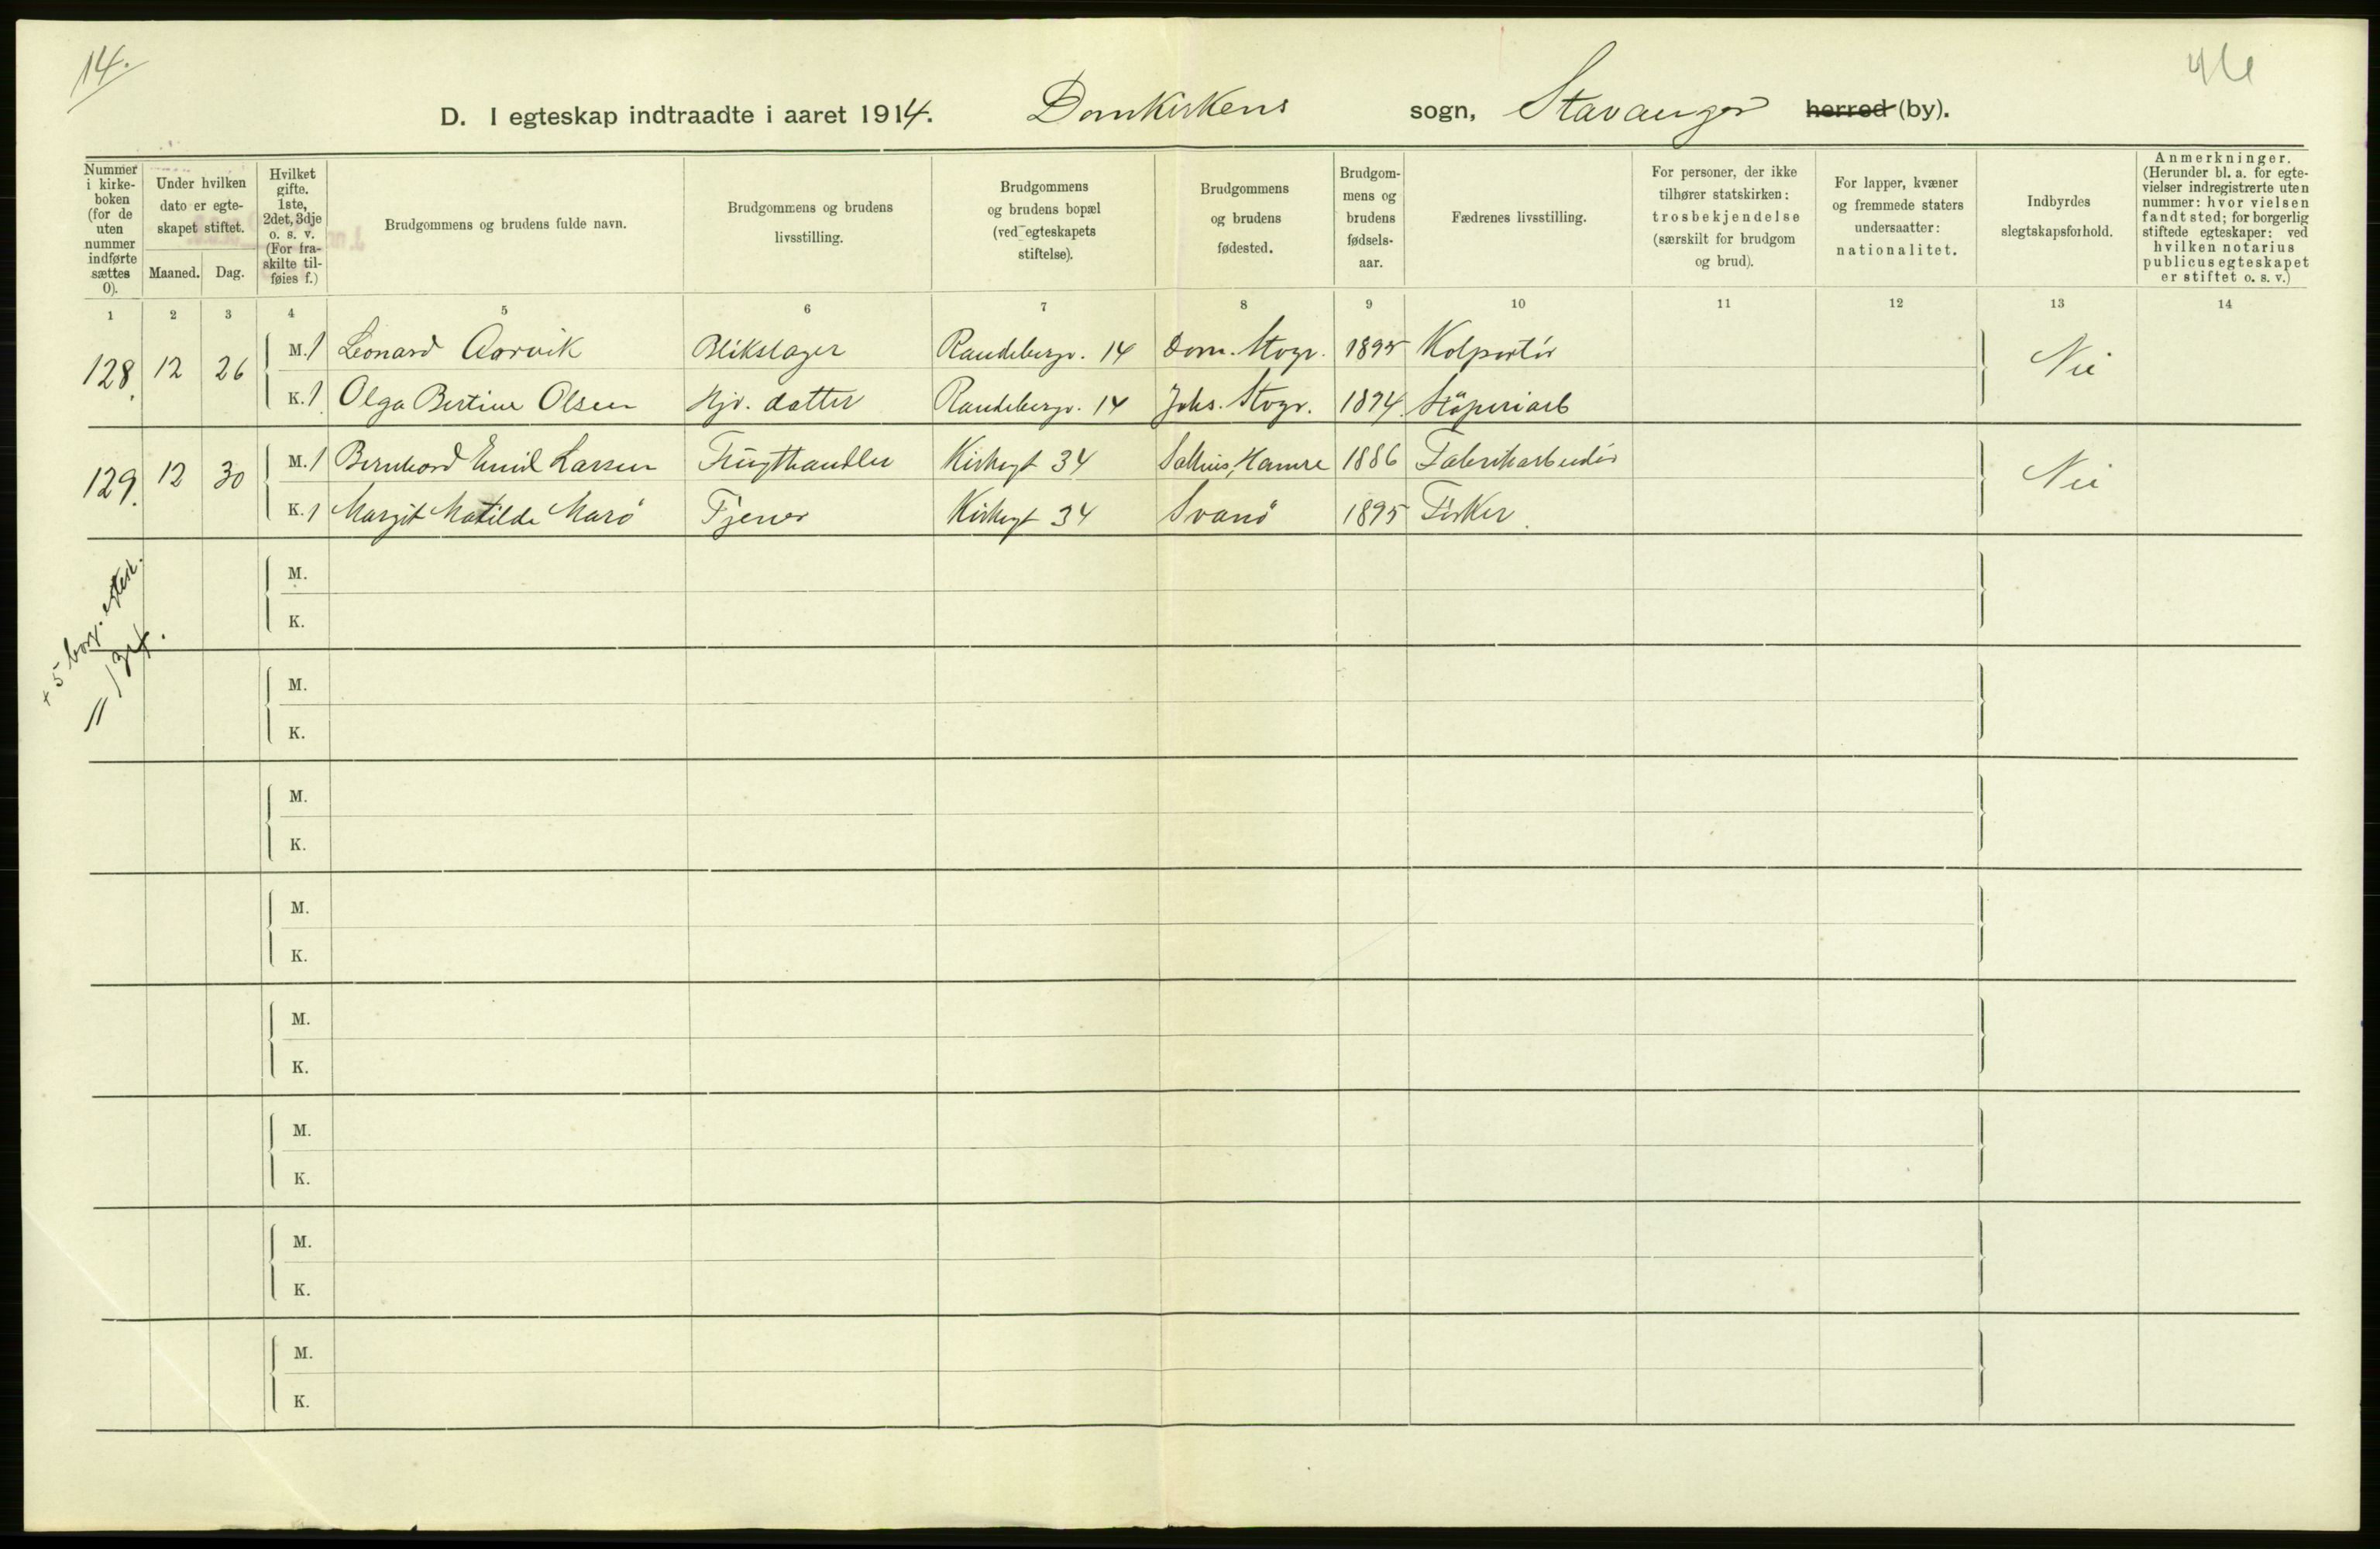 14.
D. I egteskap indtraadte i aaret 1914. Domkirkens sogn, Stavanger herred (by).
Nummer i kirke-boken (for de uten nummer indførte sættes 0).
Under hvilken dato er egte-skapet stiftet.
Maaned. Dag.
Hvilket gifte. 1ste, 2det, 3dje o. s. v. (For fra-skilte til-føies f.)
Brudgommens og brudens fulde navn.
Brudgommens og brudens livsstilling.
Brudgommens og brudens bopæl (ved egteskapets stiftelse).
Brudgommens og brudens fødested.
Brudgom-mens og brudens fødsels-aar.
Fædrenes livsstilling.
For personer, der ikke tilhører statskirken: trosbekjendelse (særskilt for brudgom og brud).
For lapper, kvæner og fremmede staters undersaatter: nationalitet.
Indbyrdes slegtskapsforhold.
Anmerkninger. (Herunder bl. a. for egte-vielser indregistrerte uten nummer: hvor vielsen fandt sted; for borgerlig stiftede egteskaper: ved hvilken notarius publicus egteskapet er stiftet o. s. v.)
1 2 3 4 5 6 7 8 9 10 11 12 13 14
128. 12 26 M. 1 Leonard Aarvik Blikslager Randebergv. 14 Dom. Stvgr. 1895 Kolportör Nei
K. 1 Olga Bertine Olsen Hjv. datter Randebergv. 14 Johs. Stvgr. 1894 Stöperiarb
129. 12 30 M. 1 Bernhard Emil Larsen Frugthandler Kirkegt 34 Salhus, Hamre 1886 Fabrikarbeider Nei
K. 1 Margit Matilde Marö Tjener Kirkegt 34 Svanö 1895 Fisker
+ 5 borg. egtesk.
134.
M.
K.
M.
K.
M.
K.
M.
K.
M.
K.
M.
K.
M.
K.
M.
K.